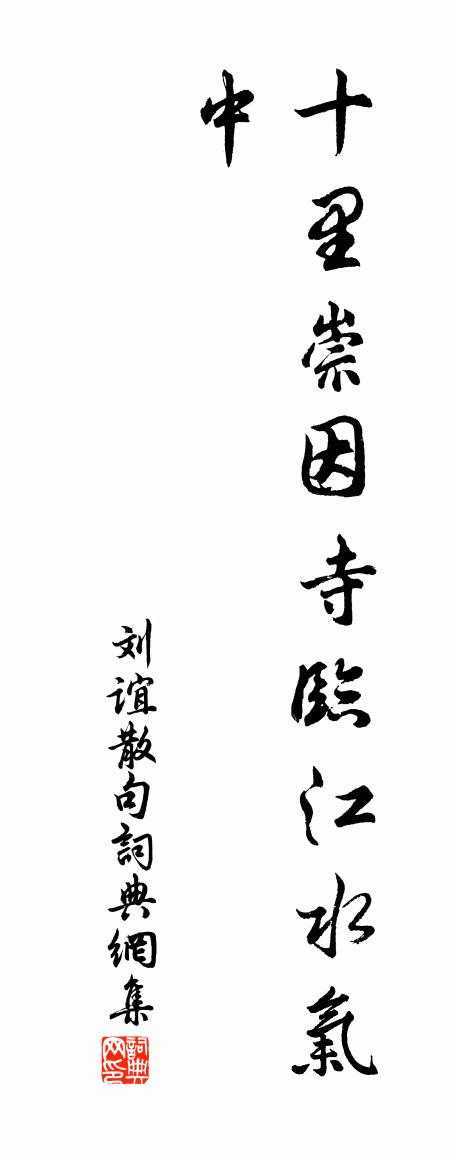 十里崇因寺臨江水氣
中
刘誼散句詞典網集
詞典网印